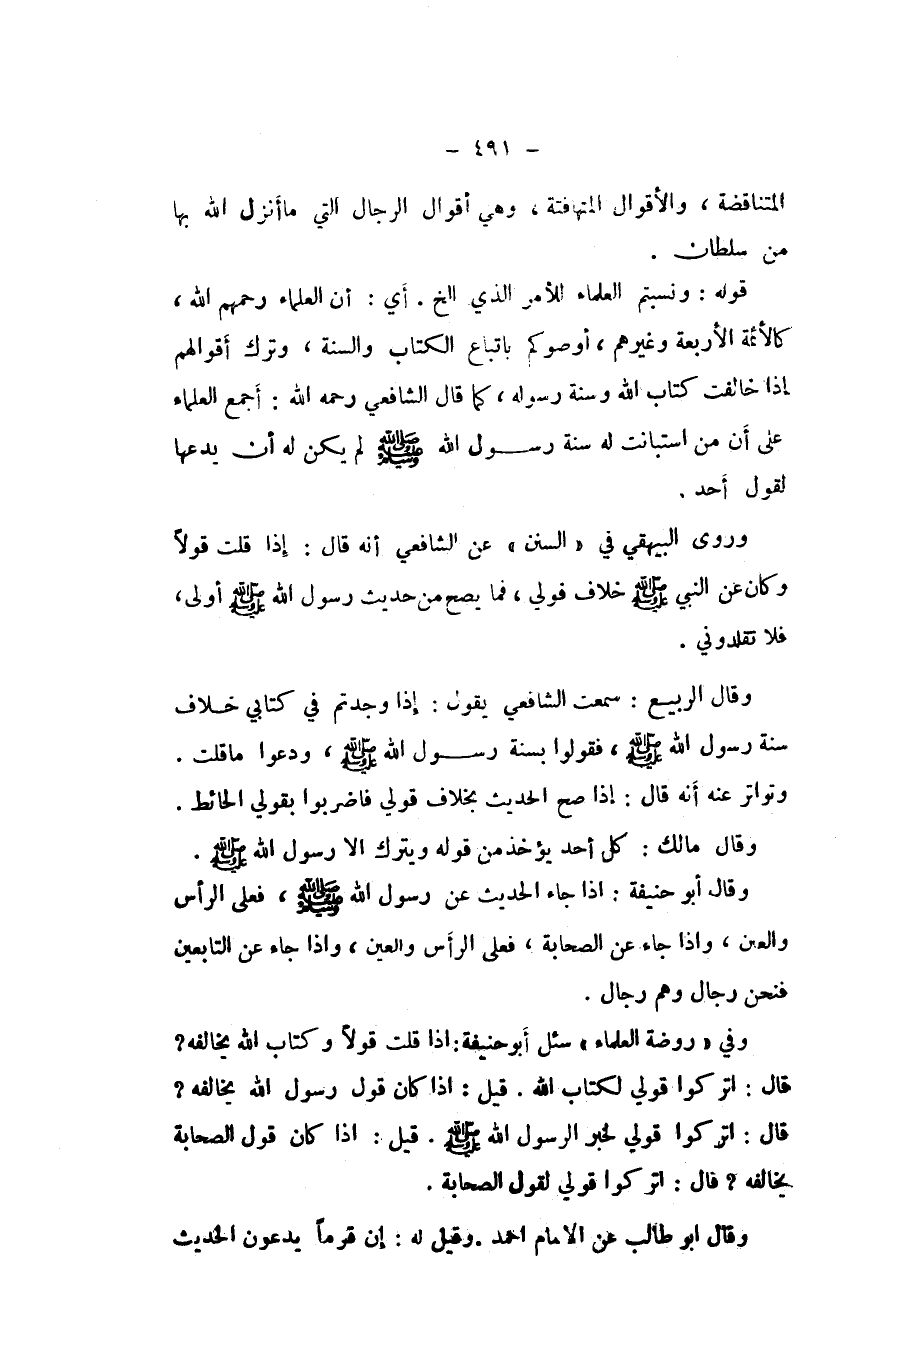 - ٤٩١ -
المتناقضة ، والأقوال المتهافتة ، وهي أقوال الرجال التي ماأنزل الله بها
من سلطان .
قوله : ونسبتم العلماء للأمر الذي الخ . أي : أن العلماء رحمهم الله ،
كالأئمة الأربعة وغيرهم ، أوصوكم باتباع الكتاب والسنة ، وترك أقوالهم
إذا خالفت كتاب الله وسنة رسوله ، كما قال الشافعي رحمه الله : أجمع العلماء
على أن من استبانت له سنة رسول الله ﷺ لم يكن له أن يدعها
لقول أحد .
وروى البيهقي في « السنن » عن الشافعي أنه قال : إذا قلت قولاً
وكان عن النبي ﷺ خلاف قولي ، فما يصح من حديث رسول الله ﷺ أولى ،
فلا تقلدوني .
وقال الربيع : سمعت الشافعي يقول : إذا وجدتم في كتابي خلاف
سنة رسول الله ﷺ ، فقولوا بسنة رسول الله ﷺ ، ودعوا ماقلت .
وتواتر عنه أنه قال : إذا صح الحديث بخلاف قولي فاضربوا بقولي الحائط .
وقال مالك : كل أحد يؤخذ من قوله ويترك الا رسول الله ﷺ .
وقال أبو حنيفة : اذا جاء الحديث عن رسول الله ﷺ ، فعلى الرأس
والعين ، واذا جاء عن الصحابة ، فعلى الرأس والعين ، واذا جاء عن التابعين
فنحن رجال وهم رجال .
وفي « روضة العلماء » سئل أبو حنيفة : اذا قلت قولاً وكتاب الله يخالفه ؟
قال : اتركوا قولي لكتاب الله . قيل : اذا كان قول رسول الله يخالفه ؟
قال : اتركوا قولي لخبر الرسول الله ﷺ . قيل : اذا كان قول الصحابة
يخالفه ؟ قال : اتركوا قولي لقول الصحابة .
وقال ابو طالب عن الامام احمد . وقيل له : إن قوماً يدعون الحديث